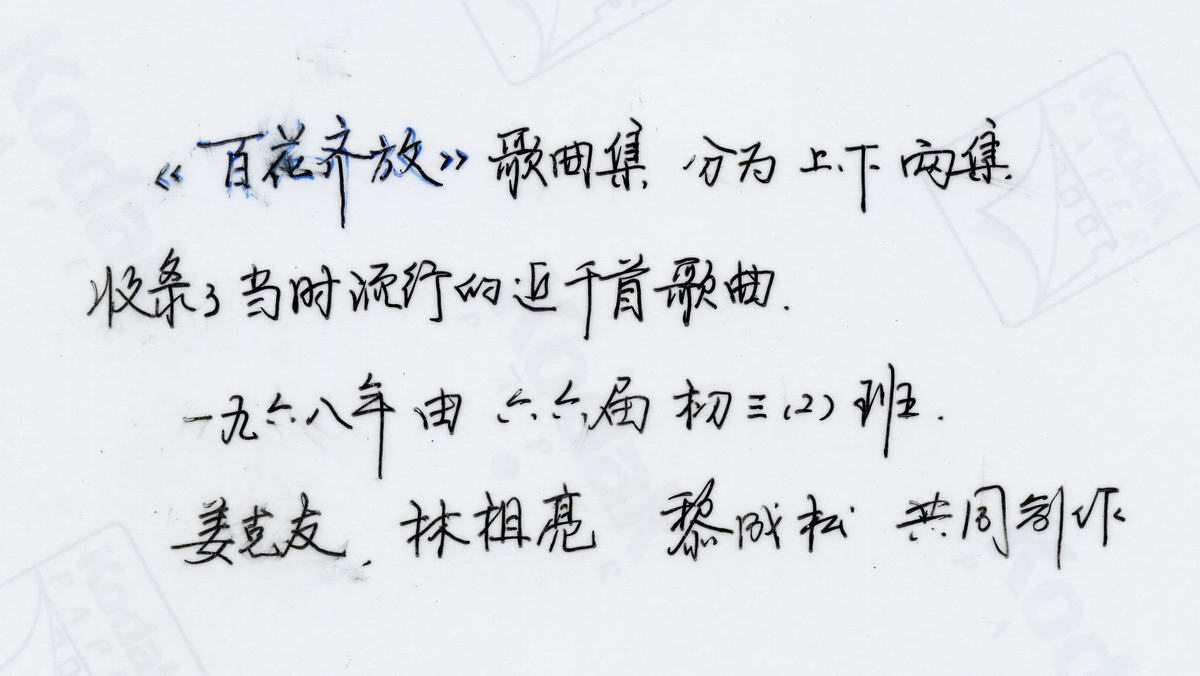 《百花齐放》歌曲集 分为上、下两集.
收录了当时流行的近千首歌曲.
一九六八年由六六届初三(2)班.
姜克友、林相亮 黎成松 共同制作
Kodak
Kodak
PAPER
Kodak
Kodak
PAPER
Kodak